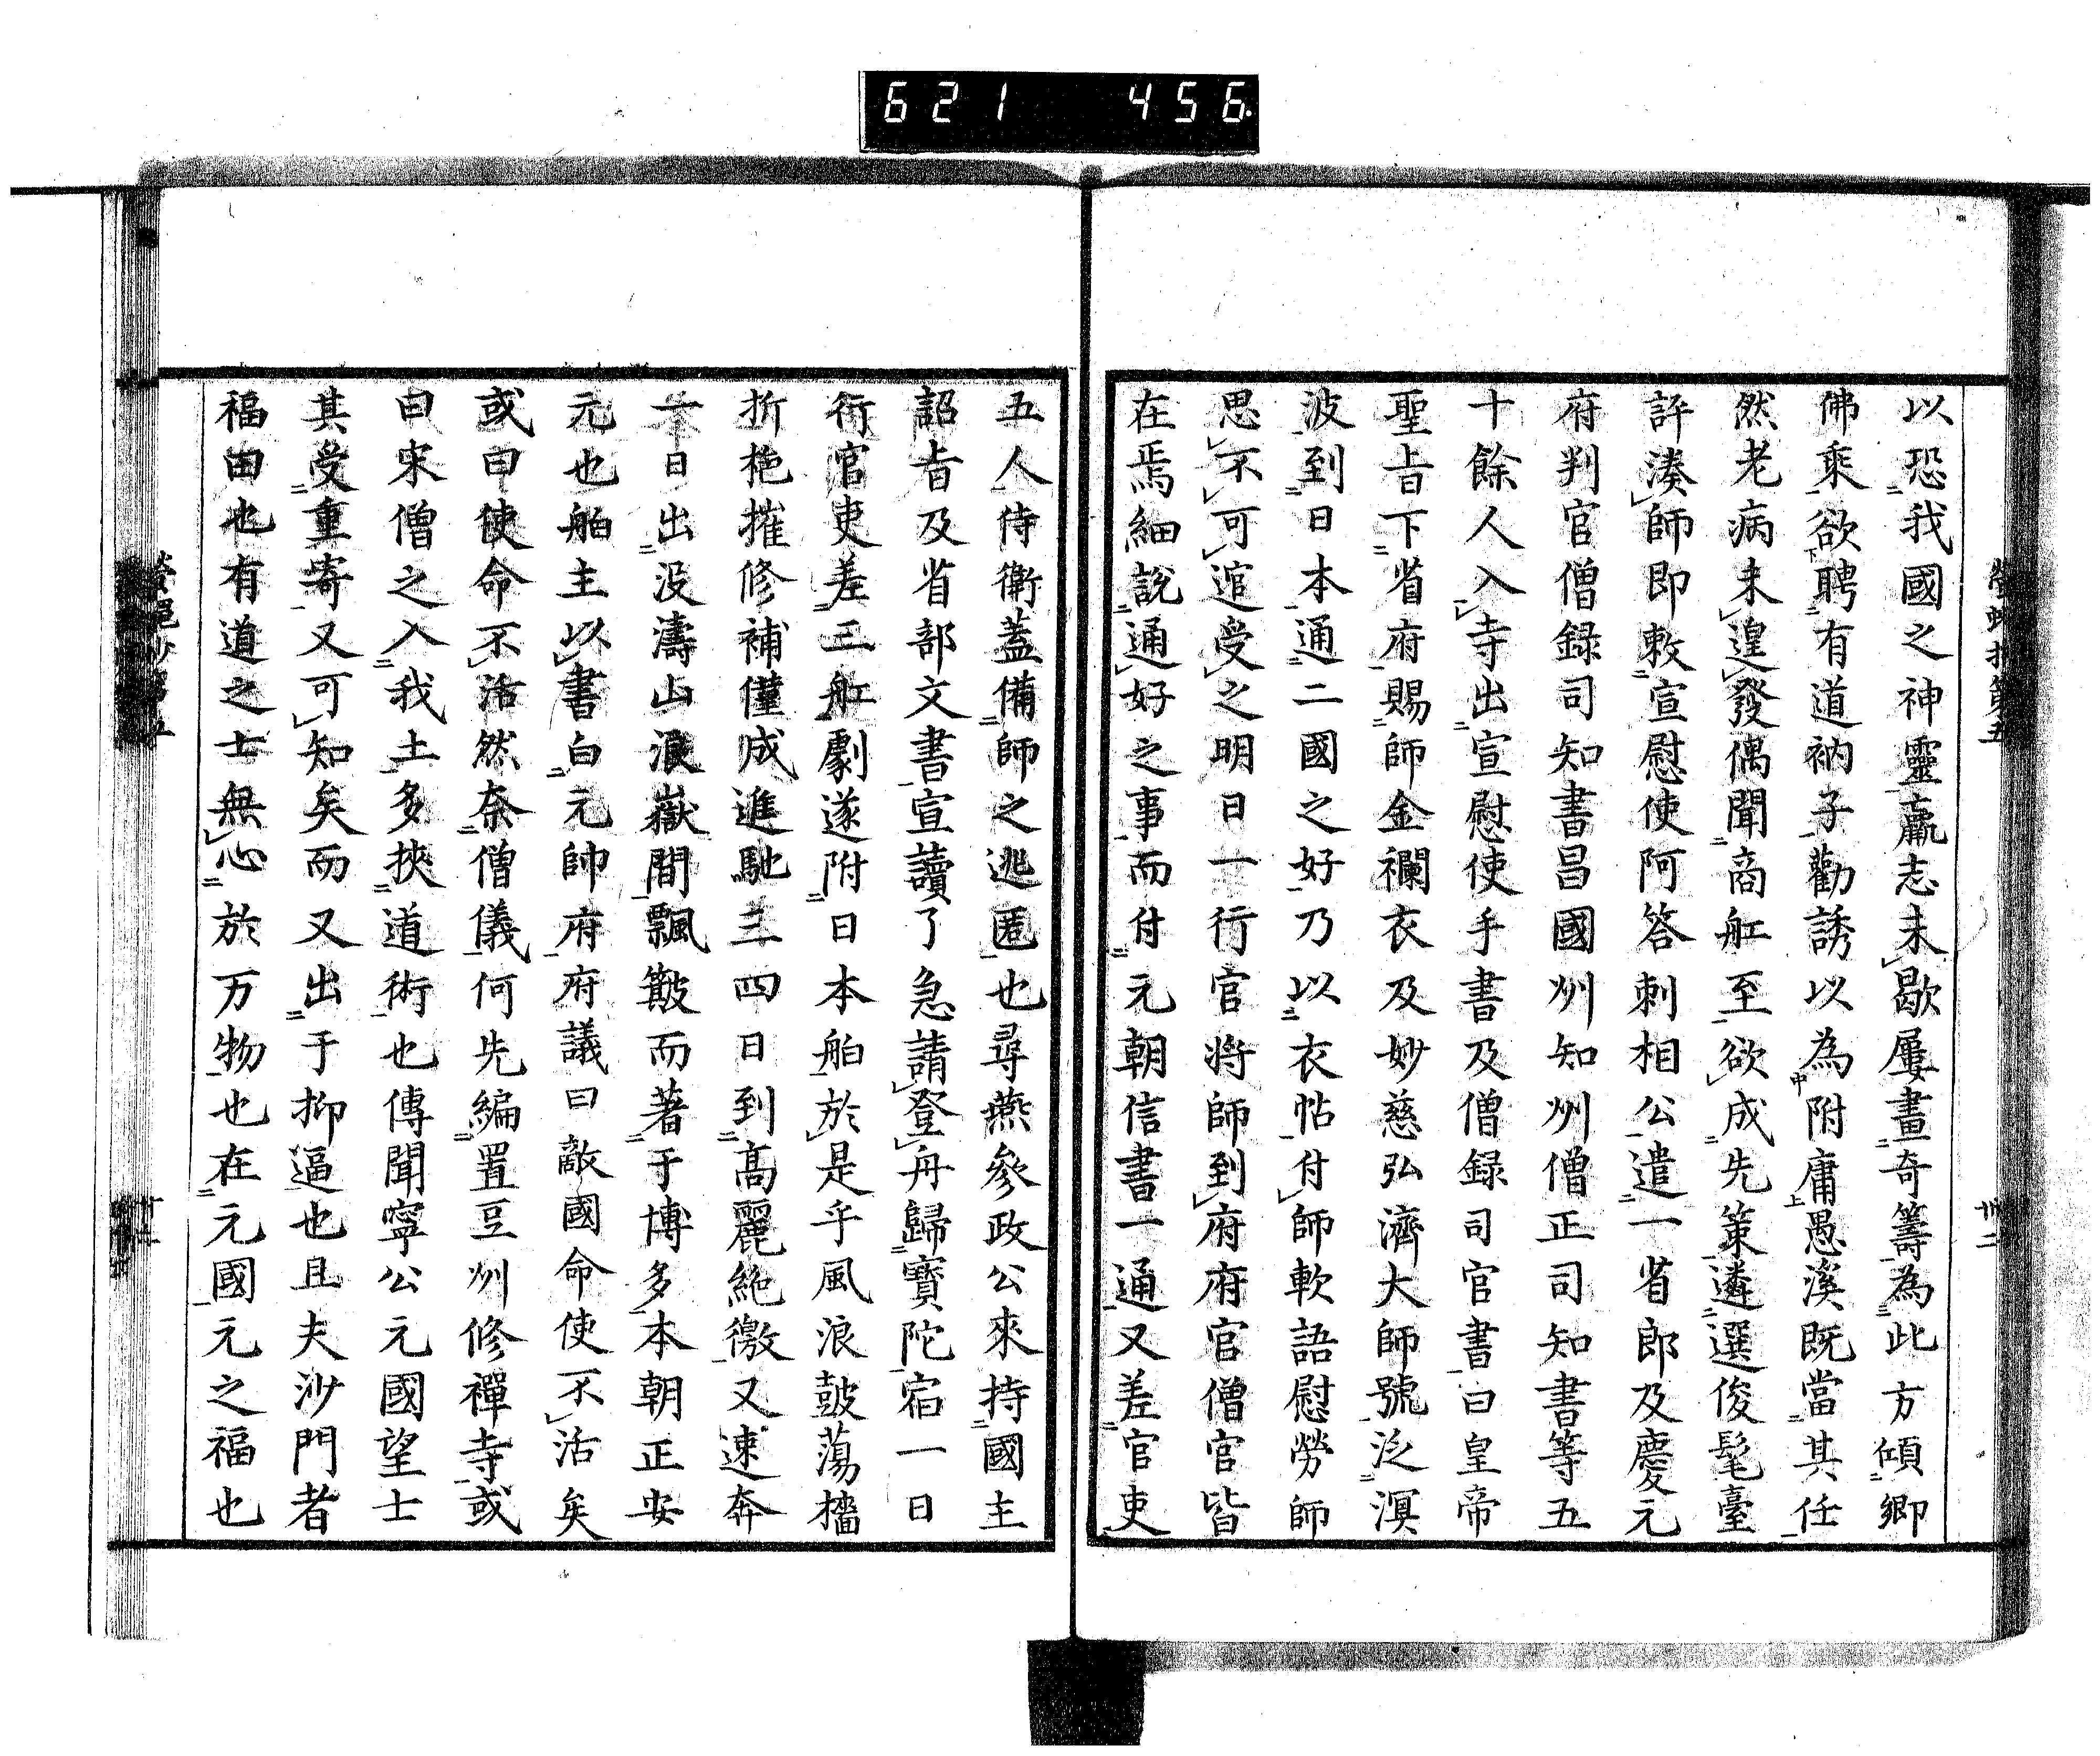 621 456
以恐我國之神靈羸志未歇屢畫奇籌為此方傾鄉
佛乘欲聘有道衲子勸誘以為附庸愚溪既當其任
然老病未遑發偶聞商舡至欲成先策遴選俊髦臺
評湊師即敕宣慰使阿答刺相公遣一省郎及慶元
府判官僧録司知書昌國州知州僧正司知書等五
十餘人入寺出宣慰使手書及僧録司官書曰皇帝
聖旨下省府賜師金襴衣及妙慈弘濟大師號泛溟
波到日本通二國之好乃以衣帖付師軟語慰勞師
思不可逭受之明日一行官将師到府府官僧官皆
在焉細說通好之事而付元朝信書一通又差官吏
五人侍衛蓋備師之逃匿也尋燕參政公來持國主
詔旨及省部文書宣讀了急請登舟歸寶陀宿一日
行官吏差三舡劇遂附日本舶於是乎風浪鼓蕩檣
折桅摧修補僅成進馳三四日到高麗絶徼又速奔
一日出没濤山浪嶽間飄簸而著于博多本朝正安
元也舶主以書白元帥府府議曰敵國命使不活矣
或曰使命不活然奈僧儀何先編置豆州修禪寺或
曰宋僧之入我土多挾道術也傳聞寧公元國望士
其受重寄又可知矣而又出于抑逼也且夫沙門者
福田也有道之士無心於万物也在元國元之福也
卅二